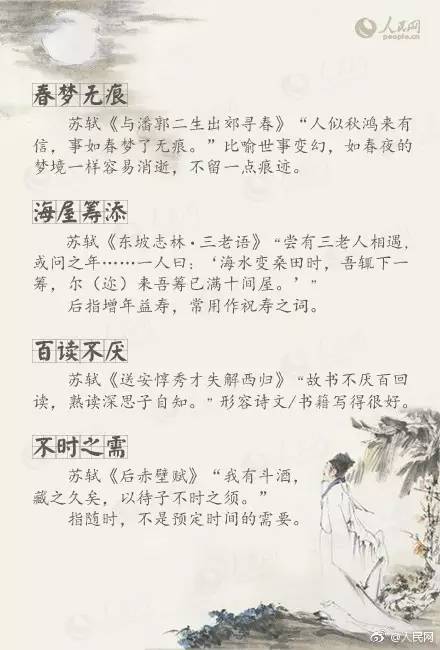 人民网
people.cn
春梦无痕
苏轼《与潘郭二生出郊寻春》“人似秋鸿来有
信，事如春梦了无痕。”比喻世事变幻，如春夜的
梦境一样容易消逝，不留一点痕迹。
海屋筹添
苏轼《东坡志林·三老语》“尝有三老人相遇，
或问之年……一人曰：‘海水变桑田时，吾辄下一
筹，尔（迩）来吾筹已满十间屋。’”
后指增年益寿，常用作祝寿之词。
百读不厌
苏轼《送安惇秀才失解西归》“故书不厌百回
读，熟读深思子自知。”形容诗文/书籍写得很好。
不时之需
苏轼《后赤壁赋》“我有斗酒，
藏之久矣，以待子不时之须。”
指随时，不是预定时间的需要。
@人民网